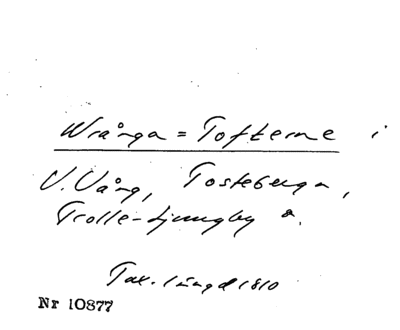 Wrånga = Tofterne i
V. Vång, Tosteberga,
Trolle-Ljungby a.
Tax. längd 1810
Nr 10877